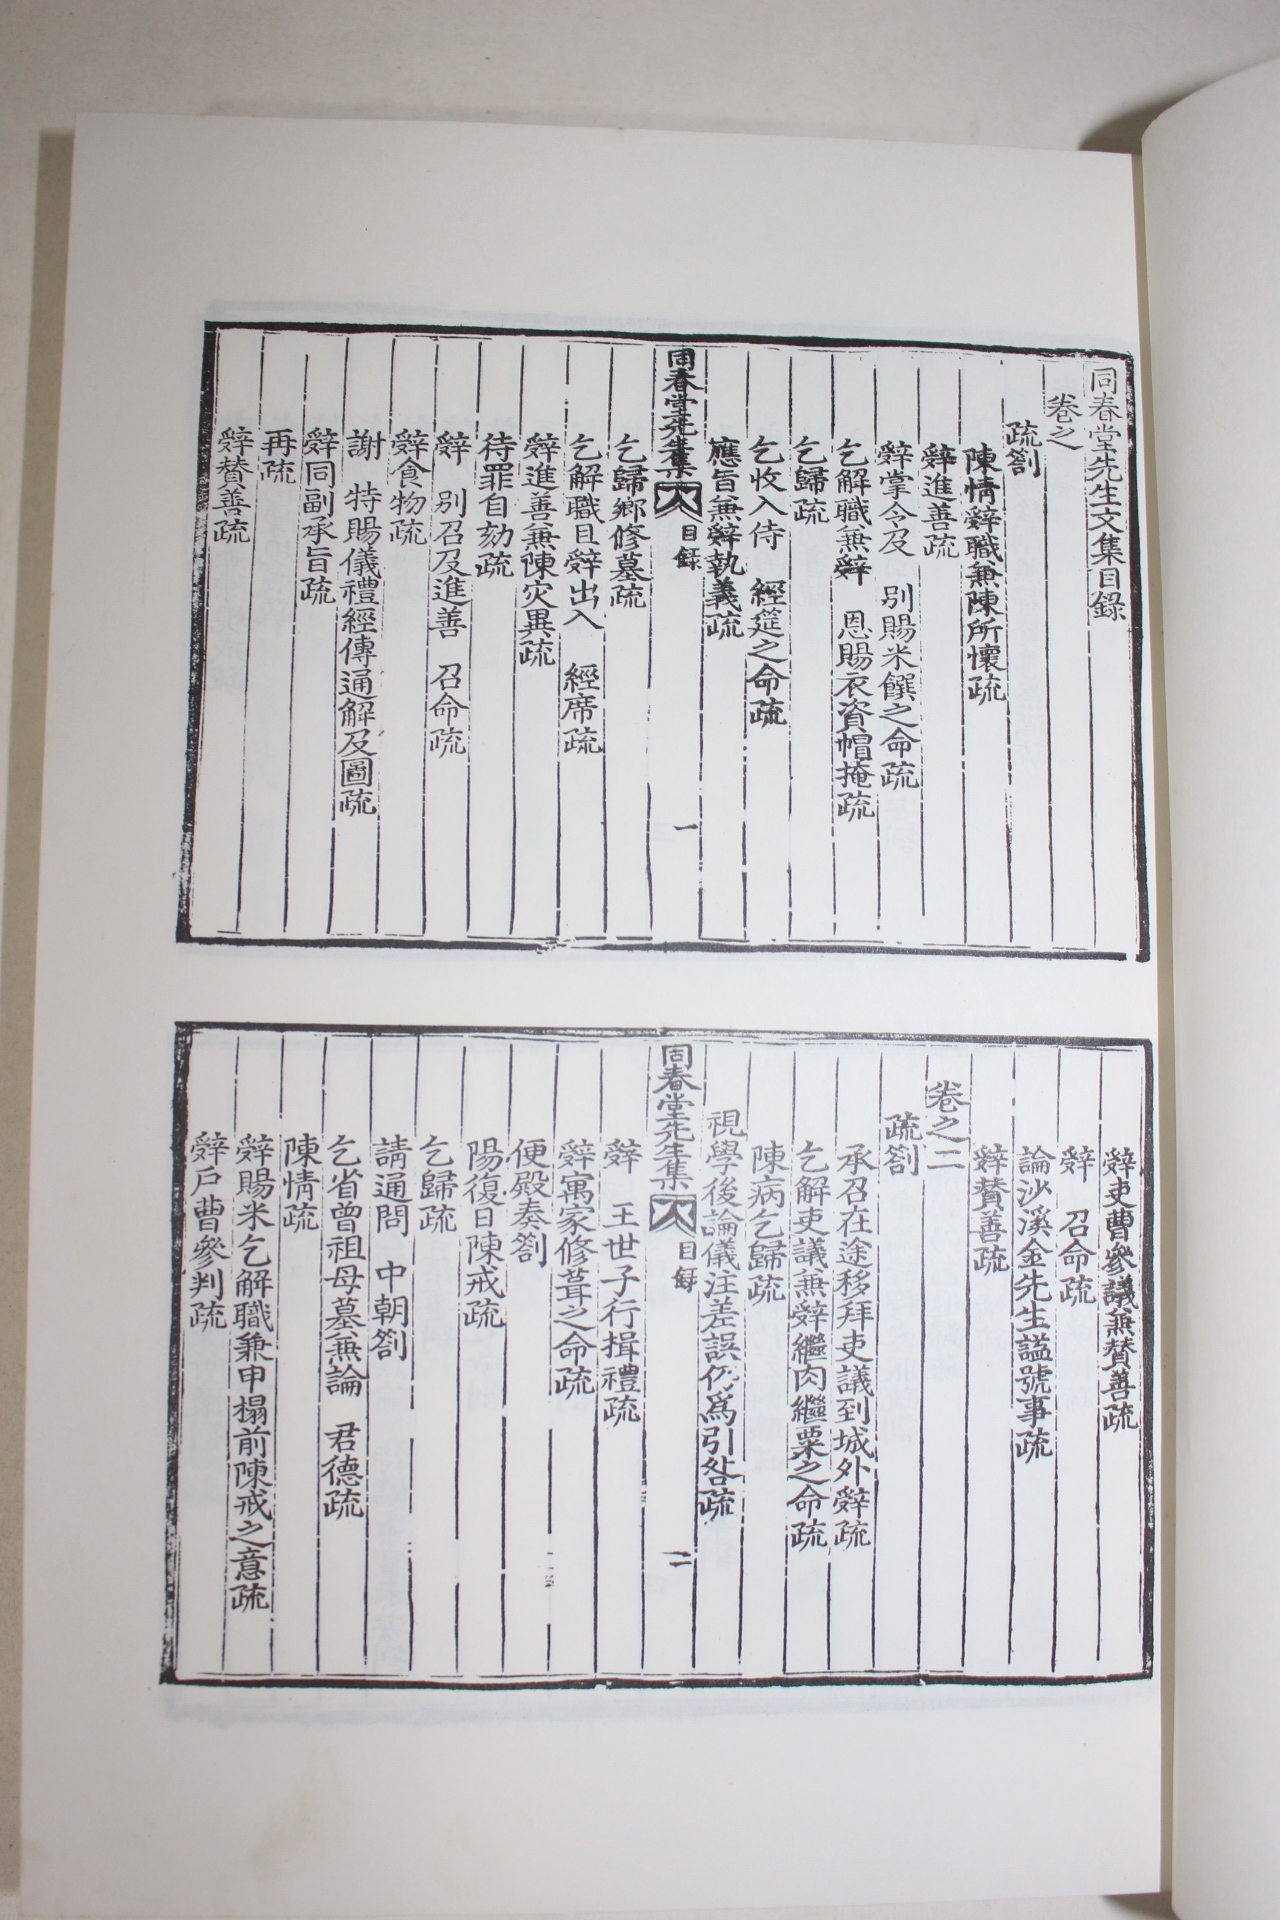 同春堂先生文集目錄
卷之一
疏劄
陳情辭職兼陳所懷疏
辭進善疏
辭掌令及 別賜米饌之命疏
乞解職兼辭 恩賜衣資帽掩疏
乞歸疏
乞收入侍 經筵之命疏
應旨兼辭執義疏
同春堂先生集 目錄 一
乞歸鄉修墓疏
乞解職且辭出入 經席疏
辭進善兼陳灾異疏
待罪自劾疏
辭 別召及進善 召命疏
辭食物疏
謝 特賜儀禮經傳通解及圖疏
辭同副承旨疏
再疏
辭贊善疏
辭吏曹參議兼贊善疏
辭 召命疏
論沙溪金先生謚號事疏
辭贊善疏
卷之二
疏劄
承召在途移拜吏議到城外辭疏
乞解吏議兼辭繼肉繼粟之命疏
陳病乞歸疏
視學後論儀注差誤仍爲引咎疏
同春堂先生集 目錄 二
辭 王世子行揖禮疏
辭寓家修葺之命疏
便殿奏劄
陽復日陳戒疏
乞歸疏
請通問 中朝劄
乞省曾祖母墓兼論 君德疏
陳情疏
辭賜米乞解職兼申榻前陳戒之意疏
辭戶曹參判疏